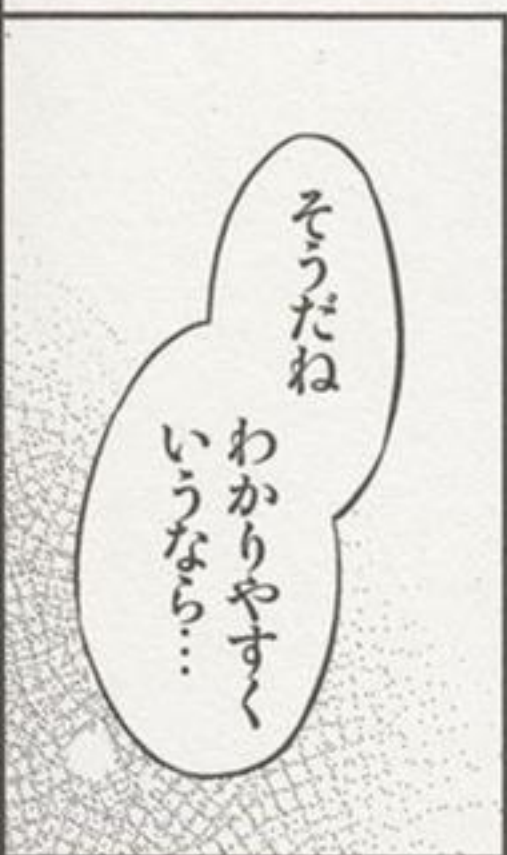 そうだね
わかりやすく
いうなら…